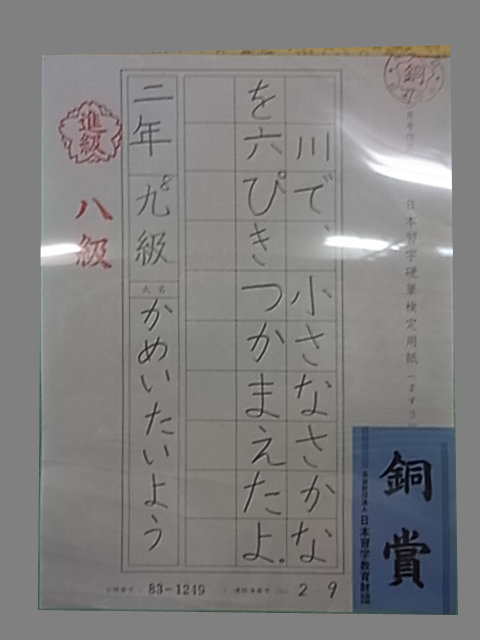 銅
日本習字硬筆検定用紙
川で、小さなさかな
を六ぴきつかまえたよ。
二年 九級 氏名 かめいたいよう
進級
八級
83-1249
2 9
銅賞
日本習字教育財団